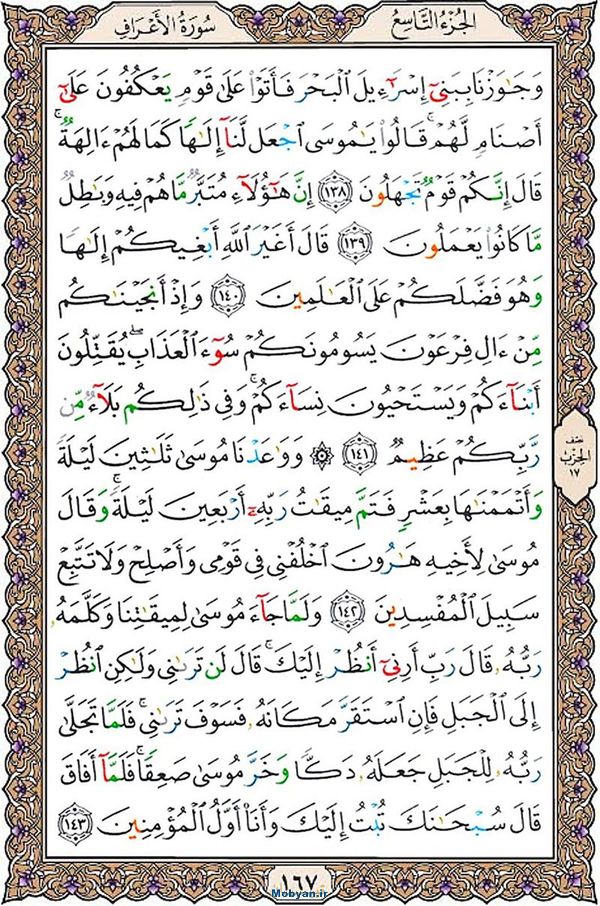 سُورَةُ الأَعْرَافِ
الجُزْءُ التَّاسِعُ
وَجَٰوَزْنَا بِبَنِىٓ إِسْرَٰٓءِيلَ ٱلْبَحْرَ فَأَتَوْا۟ عَلَىٰ قَوْمٍ يَعْكُفُونَ عَلَىٰٓ
أَصْنَامٍ لَّهُمْ ۚ قَالُوا۟ يَٰمُوسَى ٱجْعَل لَّنَآ إِلَٰهًا كَمَا لَهُمْ ءَالِهَةٌ ۚ
قَالَ إِنَّكُمْ قَوْمٌ تَجْهَلُونَ ١٣٨ إِنَّ هَٰٓؤُلَآءِ مُتَبَّرٌ مَّا هُمْ فِيهِ وَبَٰطِلٌ
مَّا كَانُوا۟ يَعْمَلُونَ ١٣٩ قَالَ أَغَيْرَ ٱللَّهِ أَبْغِيكُمْ إِلَٰهًا
وَهُوَ فَضَّلَكُمْ عَلَى ٱلْعَٰلَمِينَ ١٤٠ وَإِذْ أَنجَيْنَٰكُم
مِّنْ ءَالِ فِرْعَوْنَ يَسُومُونَكُمْ سُوٓءَ ٱلْعَذَابِ ۖ يُقَتِّلُونَ
أَبْنَآءَكُمْ وَيَسْتَحْيُونَ نِسَآءَكُمْ ۚ وَفِى ذَٰلِكُم بَلَآءٌ مِّن
رَّبِّكُمْ عَظِيمٌ ١٤١ ۞ وَوَٰعَدْنَا مُوسَىٰ ثَلَٰثِينَ لَيْلَةً
وَأَتْمَمْنَٰهَا بِعَشْرٍ فَتَمَّ مِيقَٰتُ رَبِّهِۦٓ أَرْبَعِينَ لَيْلَةً ۚ وَقَالَ
مُوسَىٰ لِأَخِيهِ هَٰرُونَ ٱخْلُفْنِى فِى قَوْمِى وَأَصْلِحْ وَلَا تَتَّبِعْ
سَبِيلَ ٱلْمُفْسِدِينَ ١٤٢ وَلَمَّا جَآءَ مُوسَىٰ لِمِيقَٰتِنَا وَكَلَّمَهُۥ
رَبُّهُۥ قَالَ رَبِّ أَرِنِىٓ أَنظُرْ إِلَيْكَ ۚ قَالَ لَن تَرَىٰنِى وَلَٰكِنِ ٱنظُرْ
إِلَى ٱلْجَبَلِ فَإِنِ ٱسْتَقَرَّ مَكَانَهُۥ فَسَوْفَ تَرَىٰنِى ۚ فَلَمَّا تَجَلَّىٰ
رَبُّهُۥ لِلْجَبَلِ جَعَلَهُۥ دَكًّا وَخَرَّ مُوسَىٰ صَعِقًا ۚ فَلَمَّآ أَفَاقَ
قَالَ سُبْحَٰنَكَ تُبْتُ إِلَيْكَ وَأَنَا۠ أَوَّلُ ٱلْمُؤْمِنِينَ ١٤٣
نصف
الحزب
١٧
١٦٧
Mobyan.ir